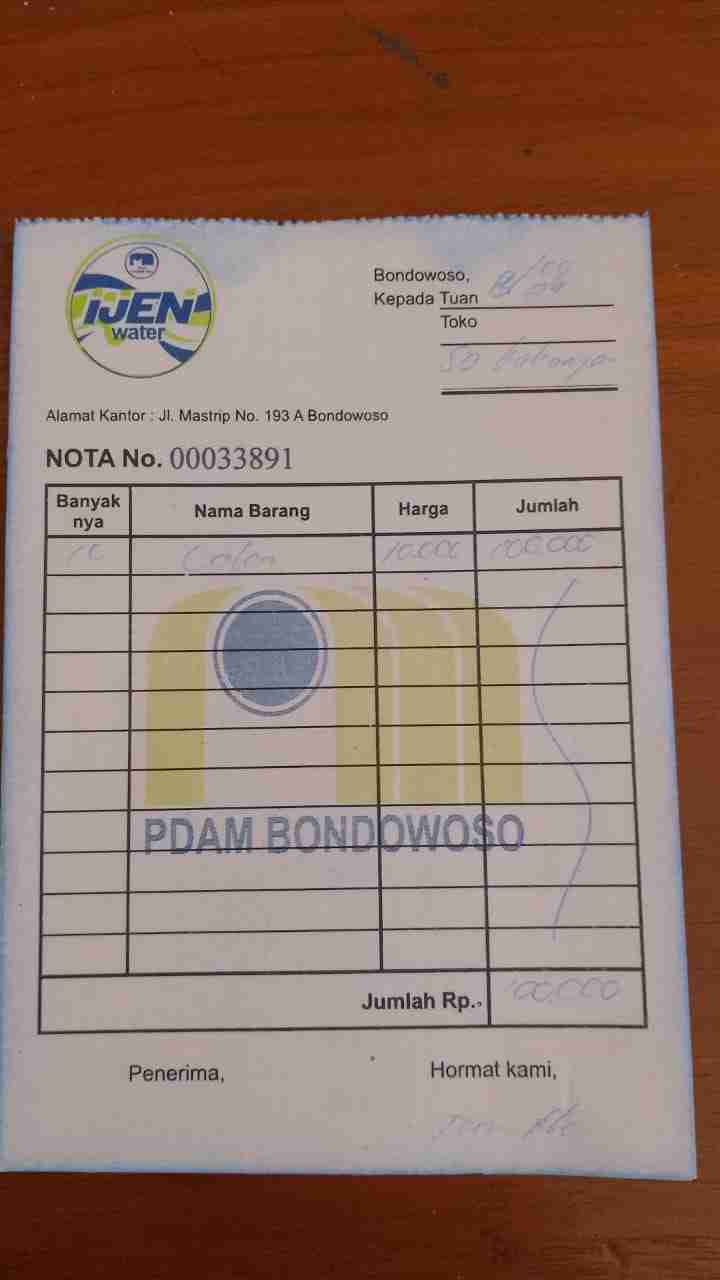 IJEN
water
Bondowoso,
Kepada Tuan
Toko
Alamat Kantor : Jl. Mastrip No. 193 A Bondowoso
NOTA No. 00033891
Banyak nya Nama Barang Harga Jumlah
10 10.000 100.000
PDAM BONDOWOSO
Jumlah Rp. 100.000
Penerima, Hormat kami,